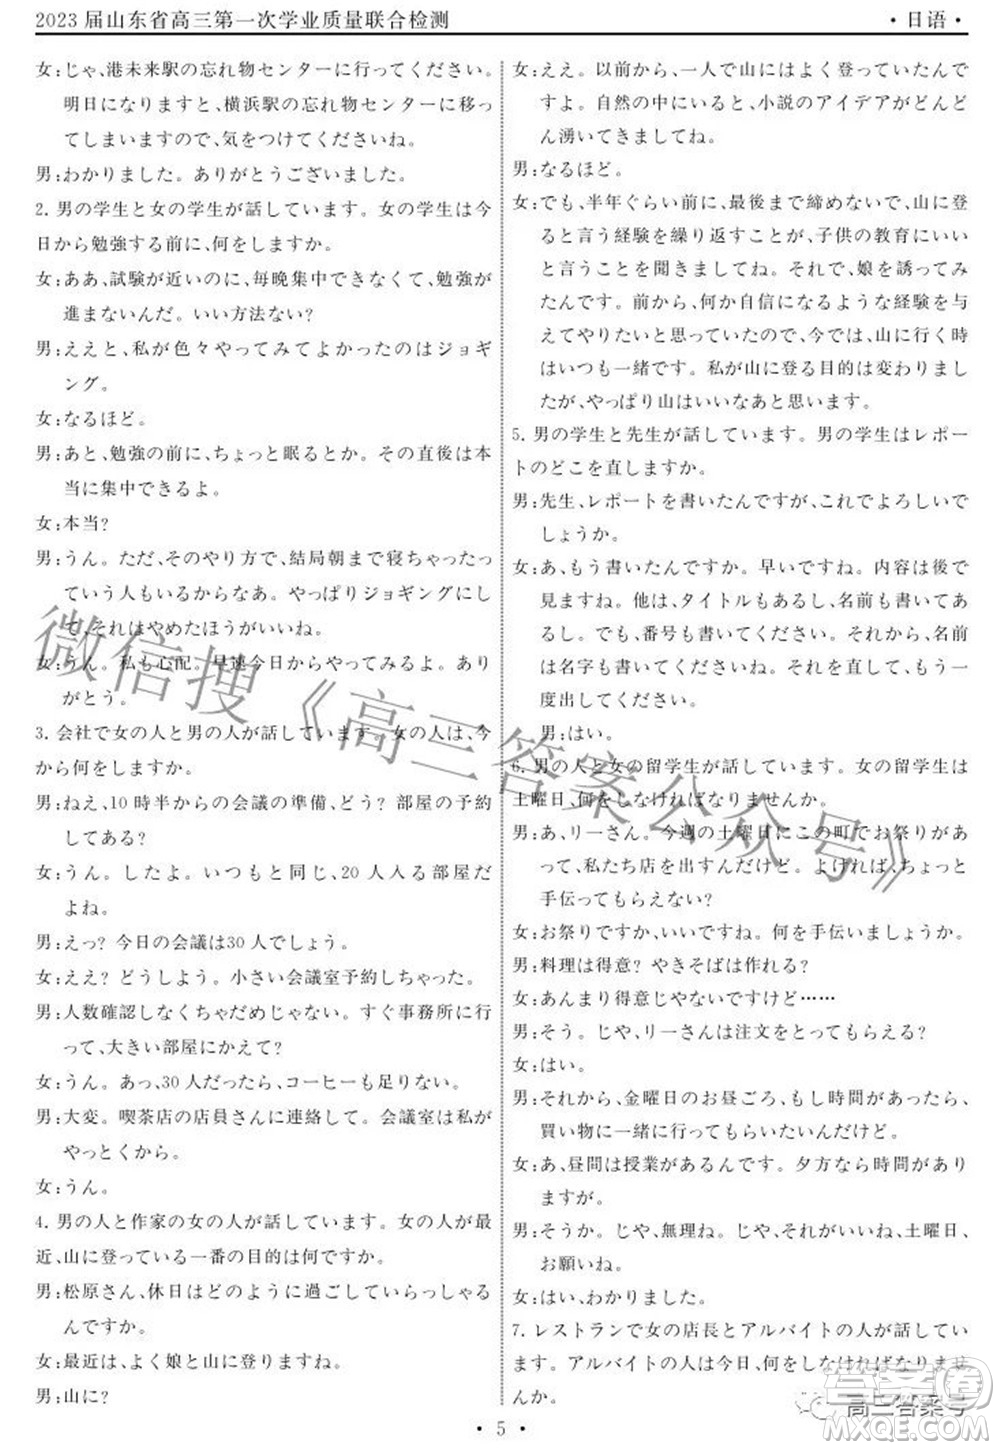 2023 届山东省高三第一次学业质量联合检测
・日语・
女:じゃ、港未来駅の忘れ物センターに行ってください。
明日になりますと、横浜駅の忘れ物センターに移っ
てしまいますので、気をつけてくださいね。
男:わかりました。ありがとうございました。
2. 男の学生と女の学生が話しています。女の学生は今
日から勉強する前に、何をしますか。
女:ああ、試験が近いのに、毎晩集中できなくて、勉強が
進まないんだ。いい方法ない?
男:ええと、私が色々やってみてよかったのはジョギ
ング。
女:なるほど。
男:あと、勉強の前に、ちょっと眠るとか。その直後は本
当に集中できるよ。
女:本当?
男:うん。ただ、そのやり方で、結局朝まで寝ちゃったっ
ていう人もいるからなあ。やっぱりジョギングにし
て、それはやめたほうがいいね。
女:うん。私も心配。早速今日からやってみるよ。あり
がとう。
3. 会社で女の人と男の人が話しています。女の人は、今
から何をしますか。
男:ねえ、10 時半からの会議の準備、どう? 部屋の予約
してある?
女:うん。したよ。いつもと同じ、20 人入る部屋だ
よね。
男:えっ? 今日の会議は30 人でしょう。
女:ええ? どうしよう。小さい会議室予約しちゃった。
男:人数確認しなくちゃだめじゃない。すぐ事務所に行
って、大きい部屋にかえて?
女:うん。あっ、30 人だったら、コーヒーも足りない。
男:大変。喫茶店の店員さんに連絡して。会議室は私が
やっとくから。
女:うん。
4. 男の人と作家の女の人が話しています。女の人が最
近、山に登っている一番の目的は何ですか。
男:松原さん、休日はどのように過ごしていらっしゃる
んですか。
女:最近は、よく娘と山に登りますね。
男:山に?
女:ええ。以前から、一人で山にはよく登っていたんで
すよ。自然の中にいると、小説のアイデアがどんど
ん湧いてきましてね。
男:なるほど。
女:でも、半年ぐらい前、最後まで締めないで、山に登
ると言う経験を繰り返すことが、子供の教育にいい
と言うことを聞きましてね。それで、娘を誘ってみ
たんです。前から、何か自信になるような経験を与
えてやりたいと思っていたので、今では、山に行く時
はいつも一緒です。私が山に登る目的は変わりまし
たが、やっぱり山はいいなあと思います。
5. 男の学生と先生が話しています。男の学生はレポー
トのどこを直しますか。
男:先生、レポートを書いたんですが、これでよろしいで
しょうか。
女:あ、もう書いたんですか。早いですね。内容は後で
見ますね。他は、タイトルもあるし、名前も書いてあ
るし。でも、番号も書いてください。それから、名前
は名字も書いてくださいね。それを直して、もう一
度出してください。
男:はい。
6. 男の人と女の留学生が話しています。女の留学生は
土曜日、何をしなければなりませんか。
男:あ、リーさん。今週の土曜日にこの町でお祭りがあ
って、私たち店を出すんだけど。よければ、ちょっと
手伝ってもらえない?
女:お祭りですか、いいですね。何を手伝いましょうか。
男:料理は得意? やきそばは作れる?
女:あんまり得意じゃないですけど……
男:そう。じや、リーさんは注文をとってもらえる?
女:はい。
男:それから、金曜日のお昼ごろ、もし時間があったら、
買い物に一緒に行ってもらいたいんだけど。
女:あ、昼間は授業があるんです。夕方なら大丈夫なん
ですが。
男:そうか。じや、無理ね。じや、それがいいね、土曜日、
お願いね。
女:はい、わかりました。
7. レストランで女の店長とアルバイトの人が話してい
ます。アルバイトの人は今日、何をしなければなりませ
んか。
・ 5 ・
微信搜《高三答案公众号》
高三答案号
答案圈
MXQE.COM